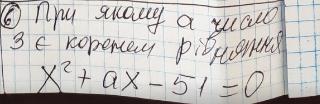 6) При якому а число
3 є коренем рівняння
x² + ax - 51 = 0